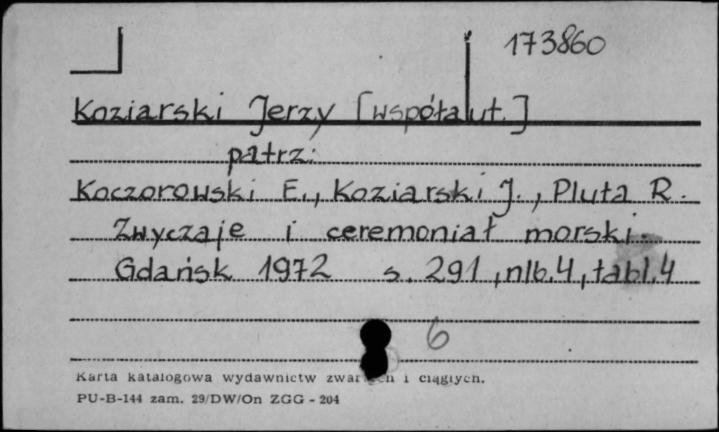 173860
Koziarski Jerzy [współaut.]
patrz:
Koczorowski E., Koziarski J., Pluta R.
Zwyczaje i ceremoniał morski.
Gdańsk 1972 s. 291, nlb. 4, tabl. 4
6
Karta katalogowa wydawnictw i ciągłych.
PU-B-144 zam. 29/DW/On ZGG - 204